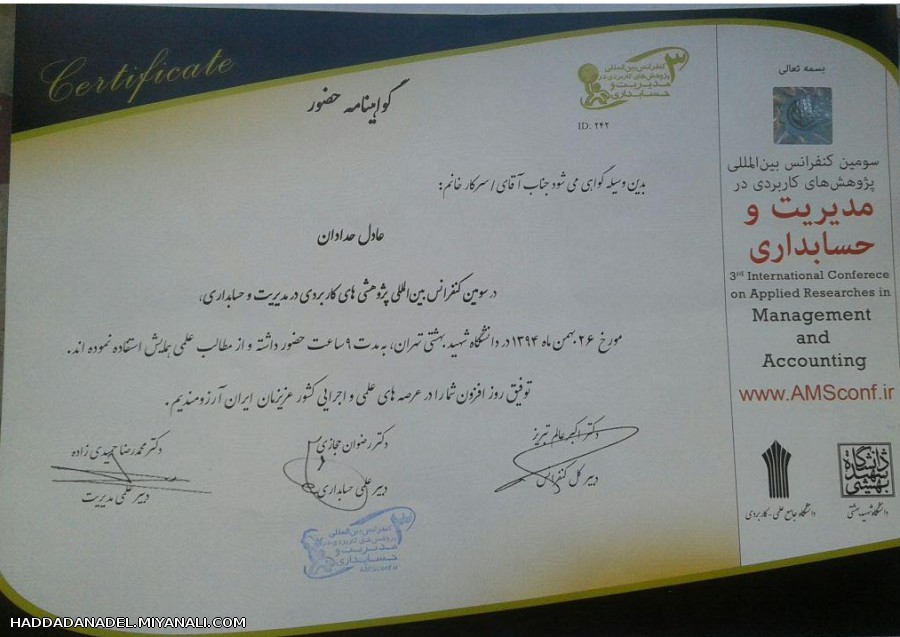 Certificate
گواهینامه حضور
کنفرانس بین‌المللی
پژوهش‌های کاربردی در
مدیریت و
حسابداری
ID: ۲۴۲
بدین وسیله گواهی می شود جناب آقای / سرکار خانم:
عادل حدادان
در سومین کنفرانس بین‌المللی پژوهشی های کاربردی در مدیریت و حسابداری،
مورخ ۲۶ بهمن ماه ۱۳۹۴ در دانشگاه شهید بهشتی تهران، به مدت ۹ ساعت حضور داشته و از مطالب علمی همایش استفاده نموده اند.
توفیق روز افزون شما را در عرصه های علمی و اجرایی کشور عزیزمان ایران آرزومندیم.
دکتر اکبر عالم تبریز
دبیر کل کنفرانس
دکتر رضوان حجازی
دبیر علمی حسابداری
دکتر محمدرضا حمیدی زاده
دبیر علمی مدیریت
کنفرانس بین‌المللی
پژوهش‌های کاربردی در
مدیریت و
حسابداری
AMSconf.ir
بسمه تعالی
سومین کنفرانس بین‌المللی
پژوهش‌های کاربردی در
مدیریت و
حسابداری
3rd International Conferece
on Applied Researches in
Management
and
Accounting
www.AMSconf.ir
دانشگاه
شهید
بهشتی
دانشگاه شهید بهشتی
دانشگاه جامع علمی - کاربردی
HADDADANADEL.MIYANALI.COM